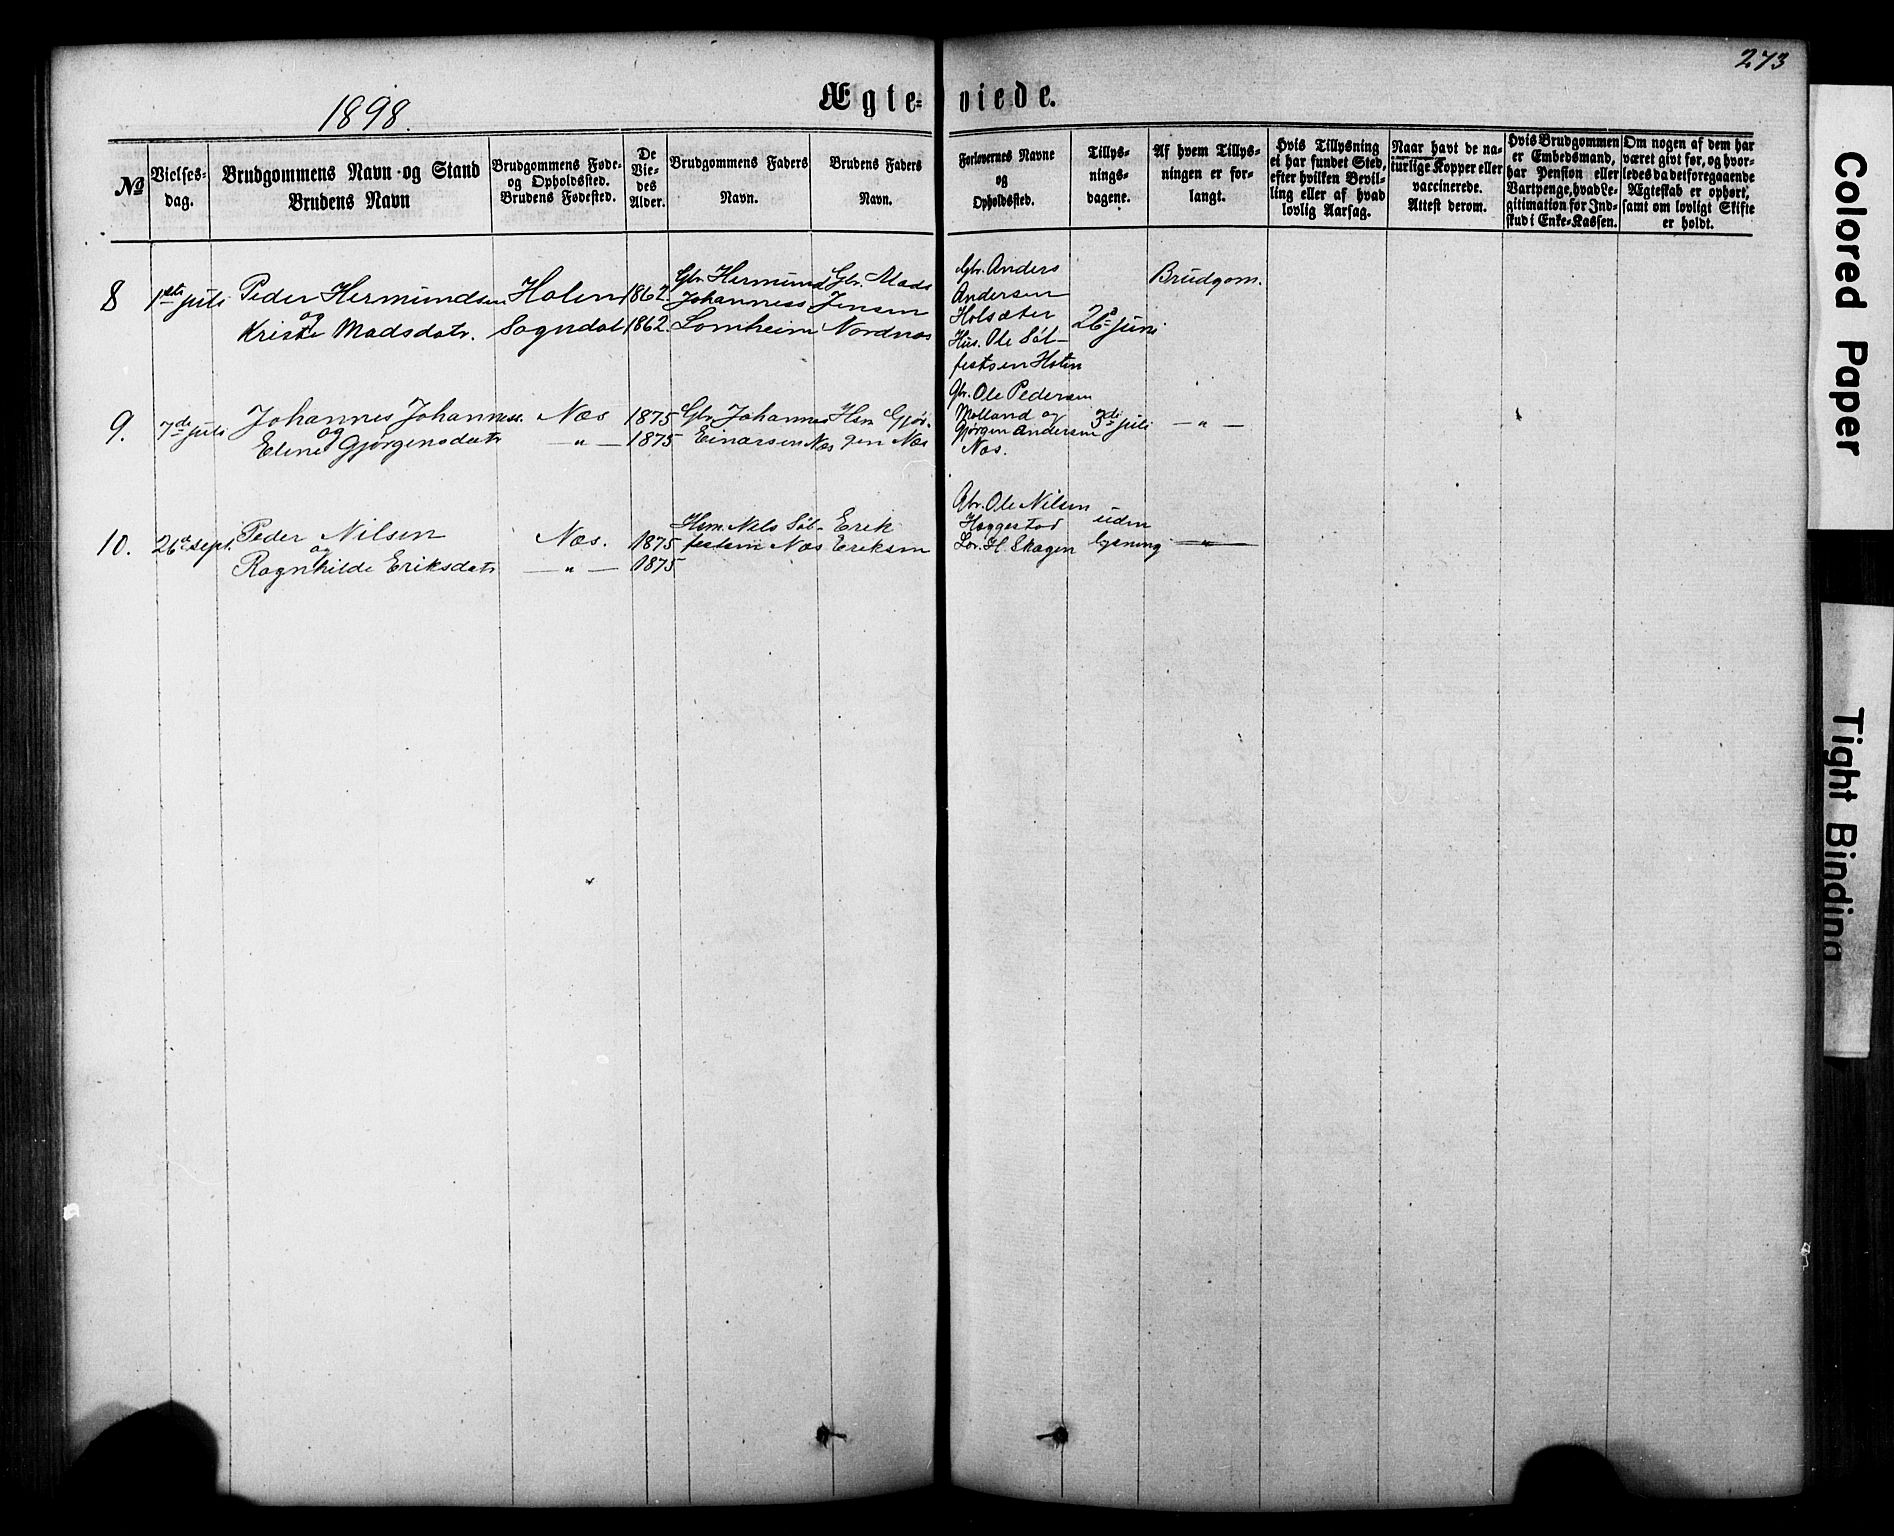 273
1898.
Ægteviede.
№
Vielses-
dag.
Brudgommens Navn og Stand
Brudens Navn
Brudgommens Føde-
og Opholdssted.
Brudens Fødested.
De
Vie-
des
Alder.
Brudgommens Faders
Navn.
Brudens Faders
Navn.
Forlovernes Navne
og
Opholdssted.
Tillys-
nings-
dagene.
Af hvem Tillys-
ningen er for-
langt.
Hvis Tillysning
ei har fundet Sted,
efter hvilken Bevil-
ling eller af hvad
lovlig Aarsag.
Naar havt de na-
turlige Kopper eller
vaccinerede.
Attest derom.
Hvis Brudgommen
er Embedsmand,
har Pension eller
Vartpenge, hvad Le-
gitimation for Ind-
skud i Enke-Kassen.
Om nogen af dem har
været givt før, og hvor-
ledes da det foregaaende
Ægteskab er ophørt,
samt om lovligt Skifte
er holdt.
8
1ste juli
Peder Hermundsen
og
Kristi Madsdatr.
Holen
Sogndal
1862.
1862.
Gbr. Hermund
Johanness
Lomheim
Gbr. Mads
Jensen
Nordnæs
Gbr. Anders
Andersen
Holsæter
Hus. Ole Søl-
festsen Holen
26de juni
Brudgom.
9.
7de juli
Johannes Johanness.
og
Eline Gjørgensdatr
Næs
— " —
1875
1875
Gbr. Johannes
Einarsen Næs
Hsm Gjør-
gen Næs
Gbr. Ole Pedersen
Molland og
Gjørgen Andersen
Næs.
3de juli
— " —
10.
26de sept.
Peder Nilsen
og
Ragnhilde Eriksdatr
Næs.
— " —
1875
1875
Hsm. Nils Søl-
festsen Næs
Erik
Eriksen
Gbr. Ole Nilsen
Haggestad
Lør. H. Skagen
uden
lysning
— " —
Colored Paper
Tight Binding